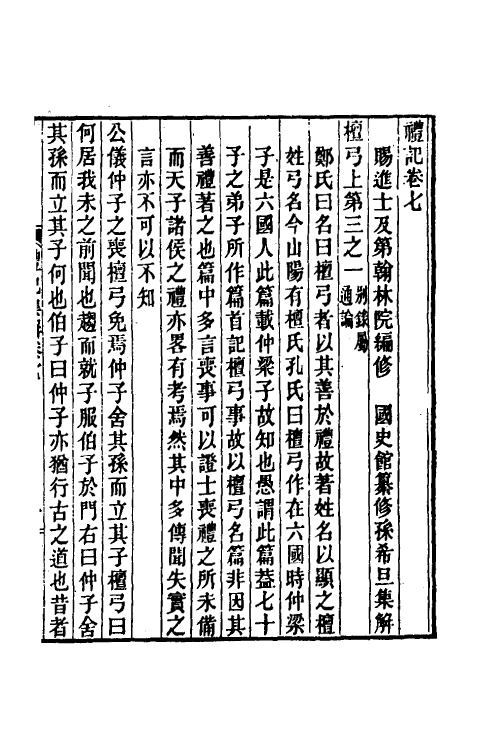 禮記卷七
賜進士及第翰林院編修　國史館纂修孫希旦集解
檀弓上第三之一別錄屬通論
鄭氏曰名曰檀弓者以其善於禮故著姓名以顯之檀
姓弓名今山陽有檀氏孔氏曰檀弓作在六國時仲梁
子是六國人此篇載仲梁子故知也愚謂此篇葢七十
子之弟子所作篇首記檀弓事故以檀弓名篇非因其
善禮著之也篇中多言喪事可以證士喪禮之所未備
而天子諸侯之禮亦畧有考焉然其中多傳聞失實之
言亦不可以不知
公儀仲子之喪檀弓免焉仲子舍其孫而立其子檀弓曰
何居我未之前聞也趨而就子服伯子於門右曰仲子舍
其孫而立其子何也伯子曰仲子亦猶行古之道也昔者